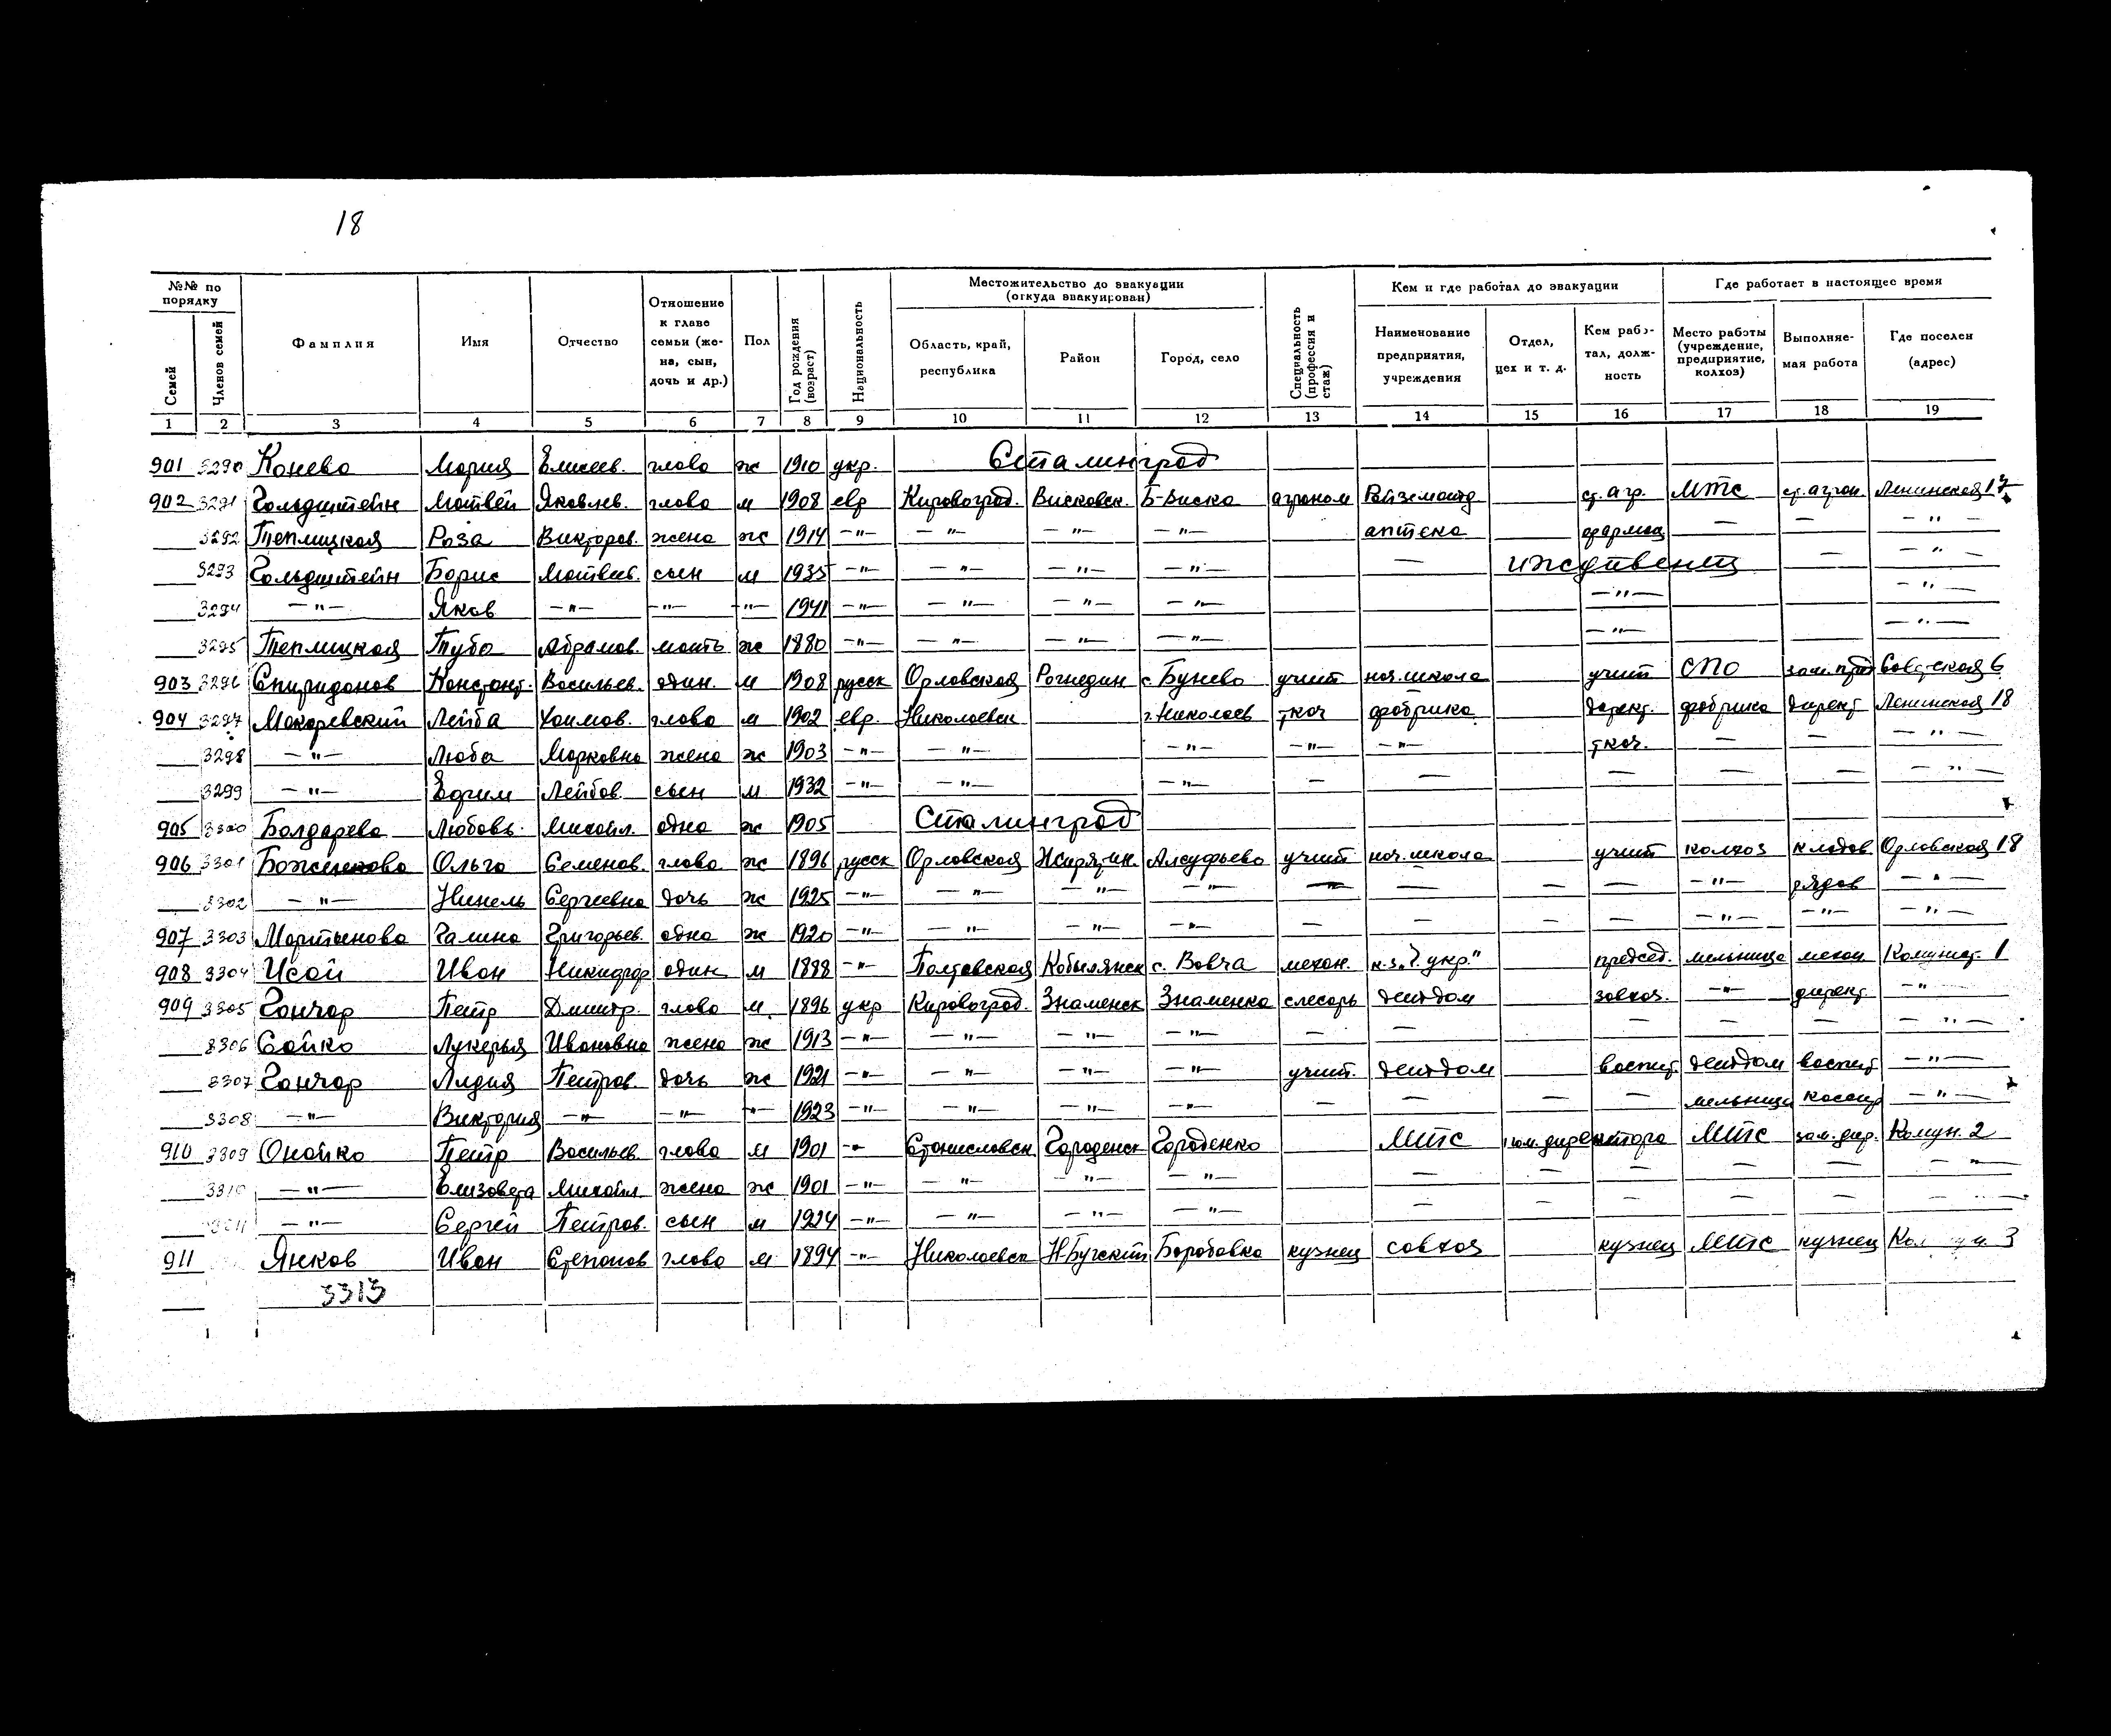 18
№№ по порядку
Семей
Членов семей
Фамилия
Имя
Отчество
Отношение к главе семьи (жена, сын, дочь и др.)
Пол
Год рождения (возраст)
Национальность
Местожительство до эвакуации (откуда эвакуирован)
Область, край, республика
Район
Город, село
Специальность (профессия и стаж)
Кем и где работал до эвакуации
Наименование предприятия, учреждения
Отдел, цех и т. д.
Кем работал, должность
Где работает в настоящее время
Место работы (учреждение, предприятие, колхоз)
Выполняемая работа
Где поселен (адрес)
1 2 3 4 5 6 7 8 9 10 11 12 13 14 15 16 17 18 19
901 3290 Конева Мария Елисеев. глава ж 1910 укр. Сталинград
902 3291 Гольдштейн Матвей Яковлев. глава м 1908 евр Кировоград. Висковск. Б-Виска агроном ст. агр. МТС ст. агрон Ленинская 17
3292 Теплицкая Роза Викторов. жена ж 1914 —"— —"— —"— —"— аптека фармац — — —"—
3293 Гольдштейн Борис Матвеев. сын м 1935 —"— —"— —"— —"— — иждивенец — —"—
3294 —"— Яков —"— —"— —"— 1941 —"— —"— —"— —"— —"— —"—
3295 Теплицкая Туба Абрамов. мать ж 1880 —"— —"— —"— —"— —"— —"—
903 3296 Спиридонов Констант. Васильев. один. м 1908 русск Орловская Рогнедин с. Бунево учит нач. школа учит СПО зам. пред Советская 6
904 3297 Макаревский Лейба Хаимов. глава м 1902 евр. Николаевск г. Николаев ткач фабрика директ. фабрика директ Ленинская 18
3298 —"— Люба Марковна жена ж 1903 —"— —"— —"— —"— —"— ткач. — — —"—
3299 —"— Ефим Лейбов. сын м 1932 —"— —"— —"— — — — — — —"—
905 3300 Болдарева Любовь Михайл. одна ж 1905 Сталинград
906 3301 Боженкова Ольга Семенов. глава ж 1896 русск Орловская Жирятин. Алсуфьево учит нач. школа учит колхоз кладов Орловская 18
3302 —"— Нинель Сергеевна дочь ж 1925 —"— —"— —"— —"— — — — — —"— рядов —"—
907 3303 Мартынова Галина Григорьев. одна ж 1920 —"— —"— —"— —"— — — — — —"— —"— —"—
908 3304 Исай Иван Никифор один м 1888 —"— Полтавская Кобылянск с. Вовча механ. к.з. „Ч. укр." председ. мельница механ Комунист. 1
909 3305 Гончар Петр Дмитр. глава м. 1896 укр Кировоград. Знаменск Знаменка слесарь детдом завхоз. —"— директ. —"—
3306 Сайко Лукерья Ивановна жена ж 1913 —"— —"— —"— —"— — — — — — —"—
3307 Гончар Лидия Петров. дочь ж 1921 —"— —"— —"— —"— учит. детдом воспит детдом воспит —"—
3308 —"— Виктория —"— —"— —"— 1923 —"— —"— —"— —"— — — — — мельница кассир —"—
910 3309 Онойко Петр Васильев. глава м 1901 —"— Станиславск Городенск Городенко МТС пом. директора МТС зам. дир. Комун. 2
3310 —"— Елизавета Михайл. жена ж 1901 —"— —"— —"— —"— — — — — — —"—
3311 —"— Сергей Петров. сын м 1924 —"— —"— —"— —"— — — — — — —"—
911 Янков Иван Степанов глава м. 1894 —"— Николаевск Н-Бугский Боробовка кузнец совхоз кузнец МТС кузнец 3
3313